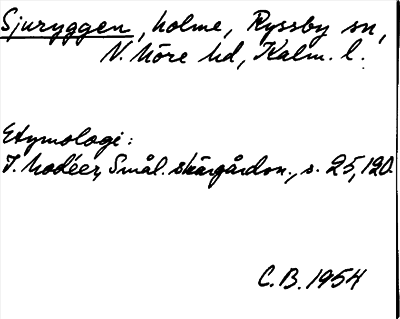 Sjuryggen, holme, Ryssby sn,
N. Möre hd, Kalm. l.
Etymologi:
I. Modéer, Smål. skärgårdsn., s. 25, 120.
C.B. 1954